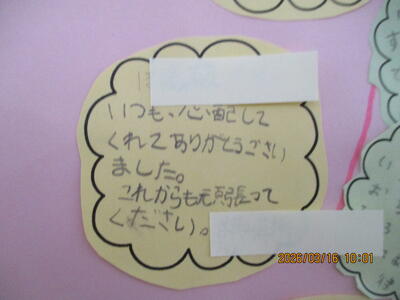 いつも、心配して
くれてありがとうござい
ました。
これからも頑張って
ください。
2026/03/16 10:01